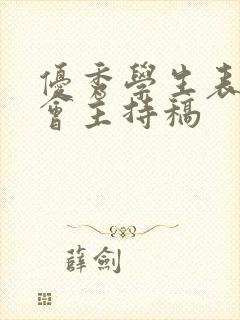 優秀學生表
會主持稿
薛劍